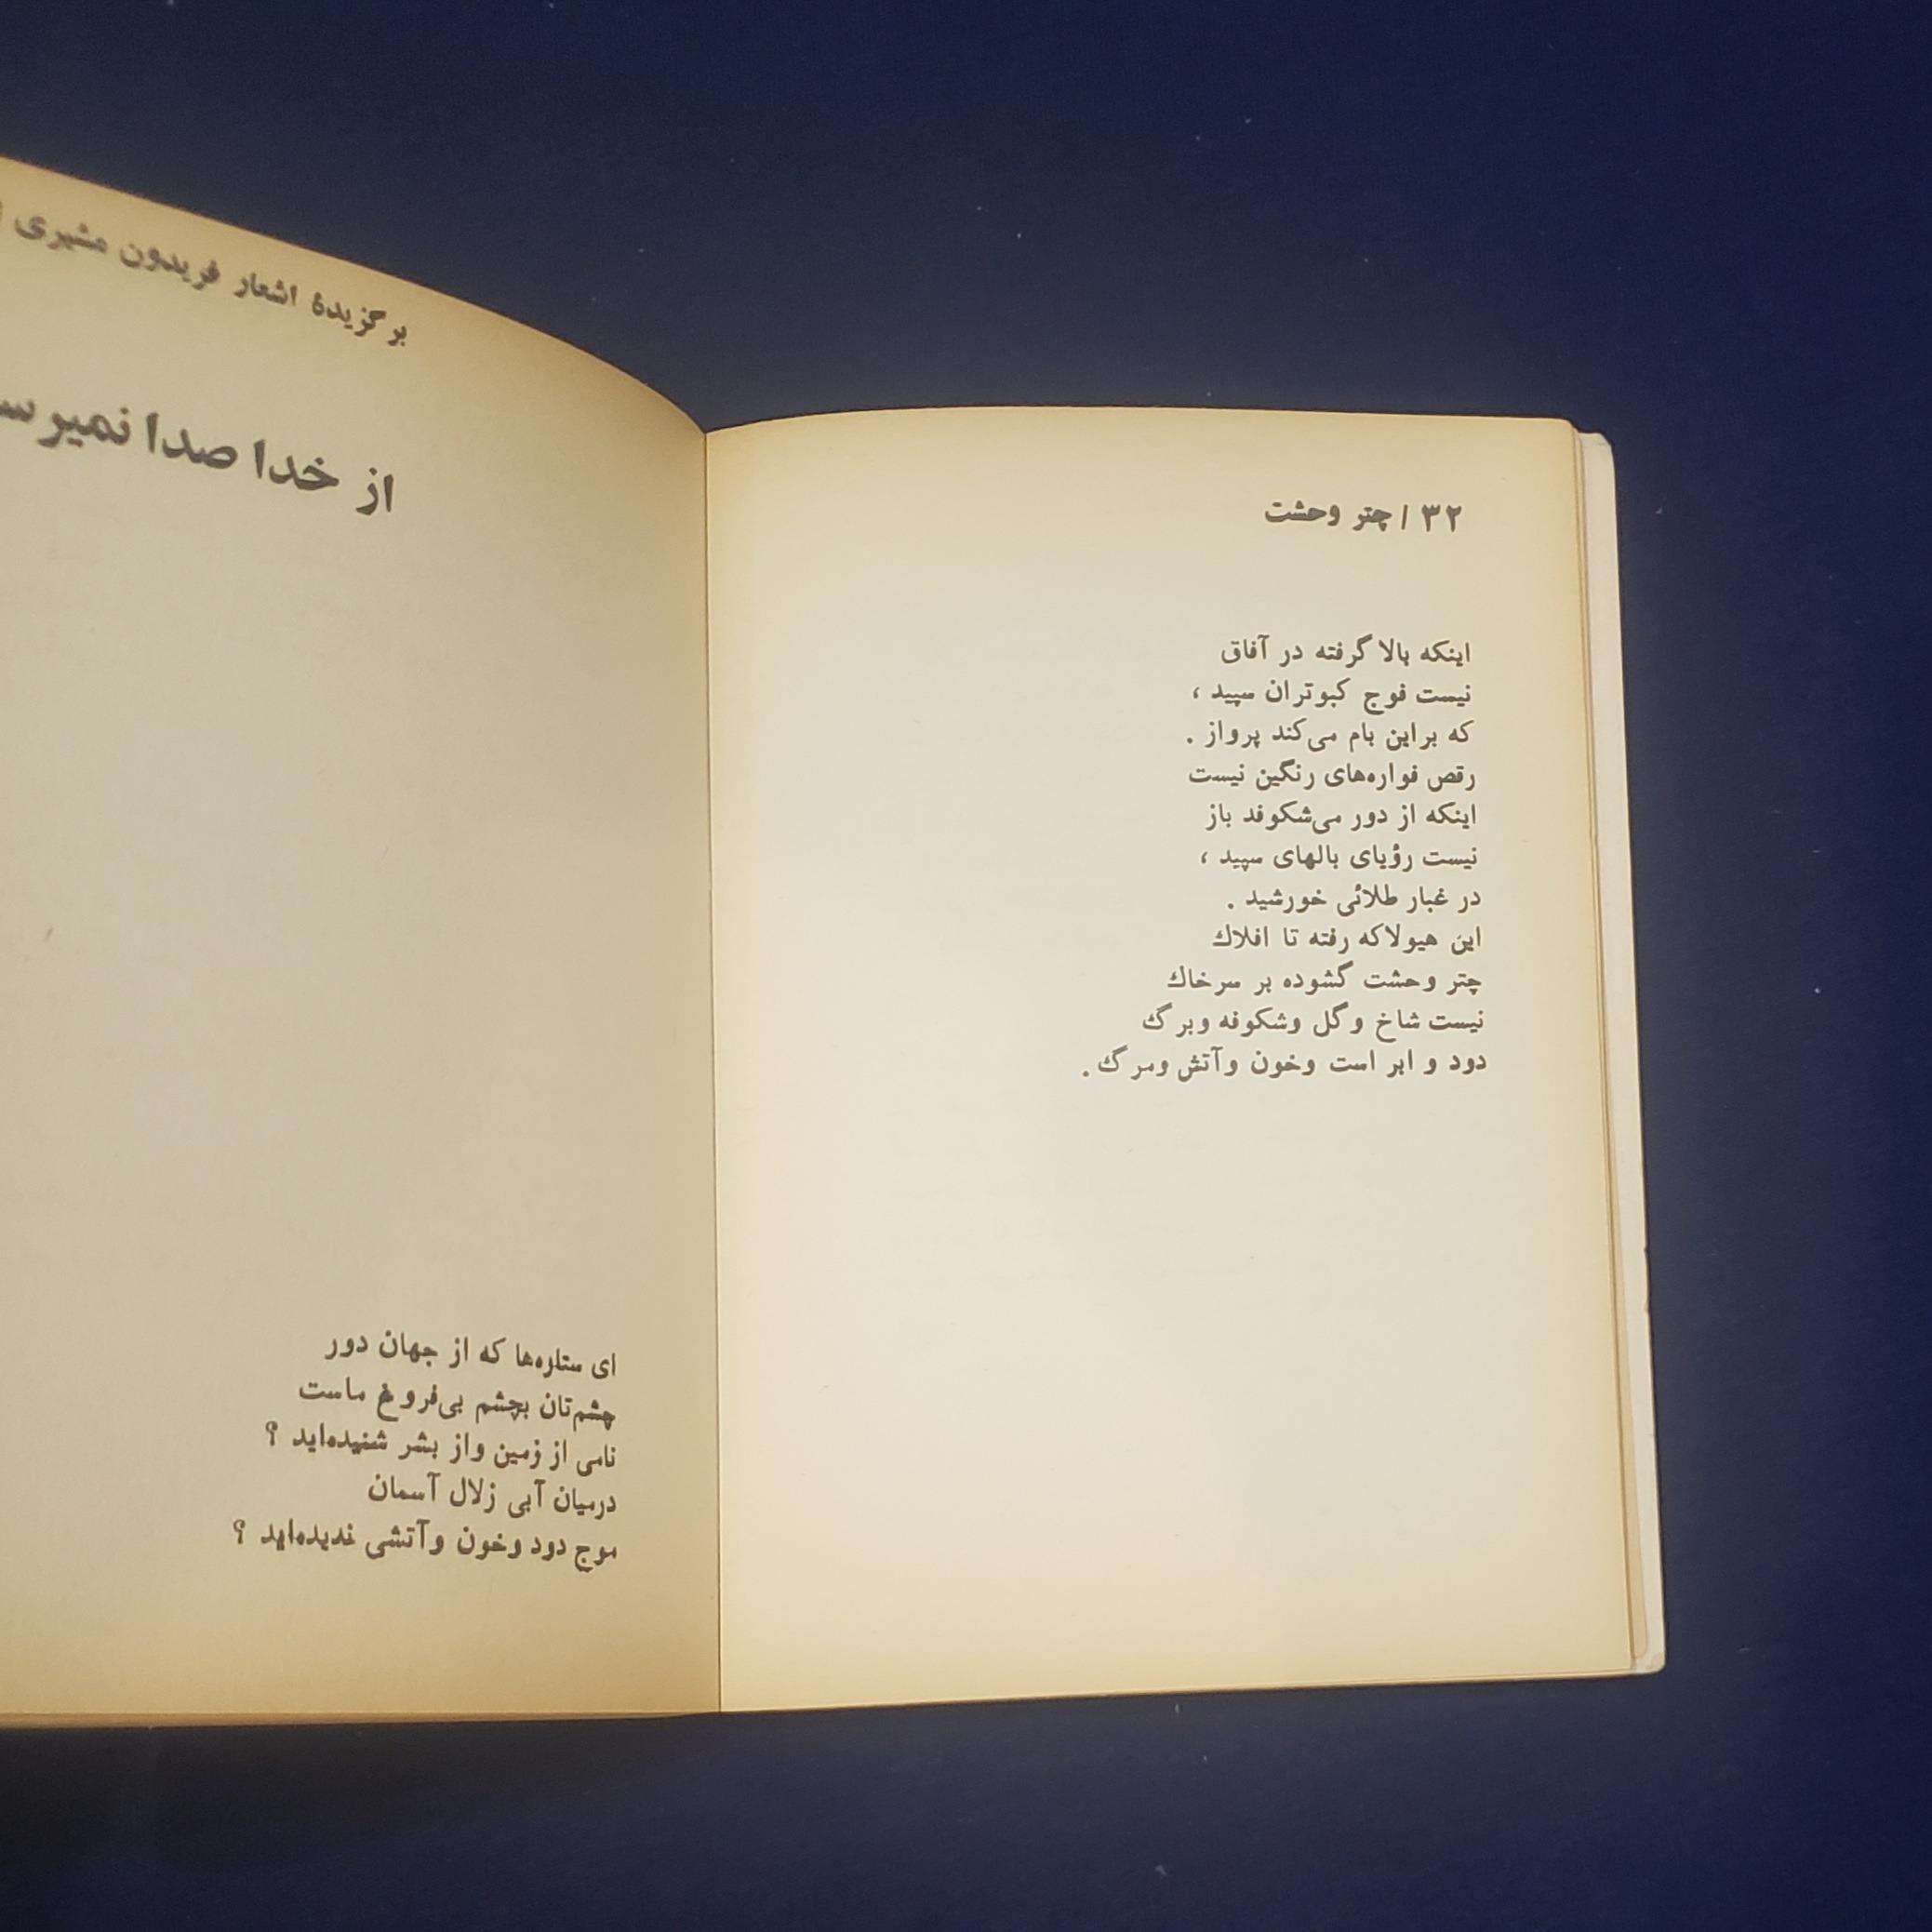 ۳۲ / چتر وحشت
اینکه بالا گرفته در آفاق
نیست فوج کبوتران سپید ،
که براین بام می‌کند پرواز .
رقص فواره‌های رنگین نیست
اینکه از دور می‌شکوفد باز
نیست رؤیای بالهای سپید ،
در غبار طلائی خورشید .
این هیولاکه رفته تا افلاك
چتر وحشت گشوده بر سرخاك
نیست شاخ وگل وشکوفه وبرگ
دود و ابر است وخون وآتش ومرگ .
برگزیدهٔ اشعار فریدون مشیری /
از خدا صدا
ای ستاره‌ها که از جهان دور
چشم‌تان بچشم بی‌فروغ ماست
نامی از زمین واز بشر شنیده‌اید ؟
درمیان آبی زلال آسمان
موج دود وخون وآتشی ندیده‌اید ؟